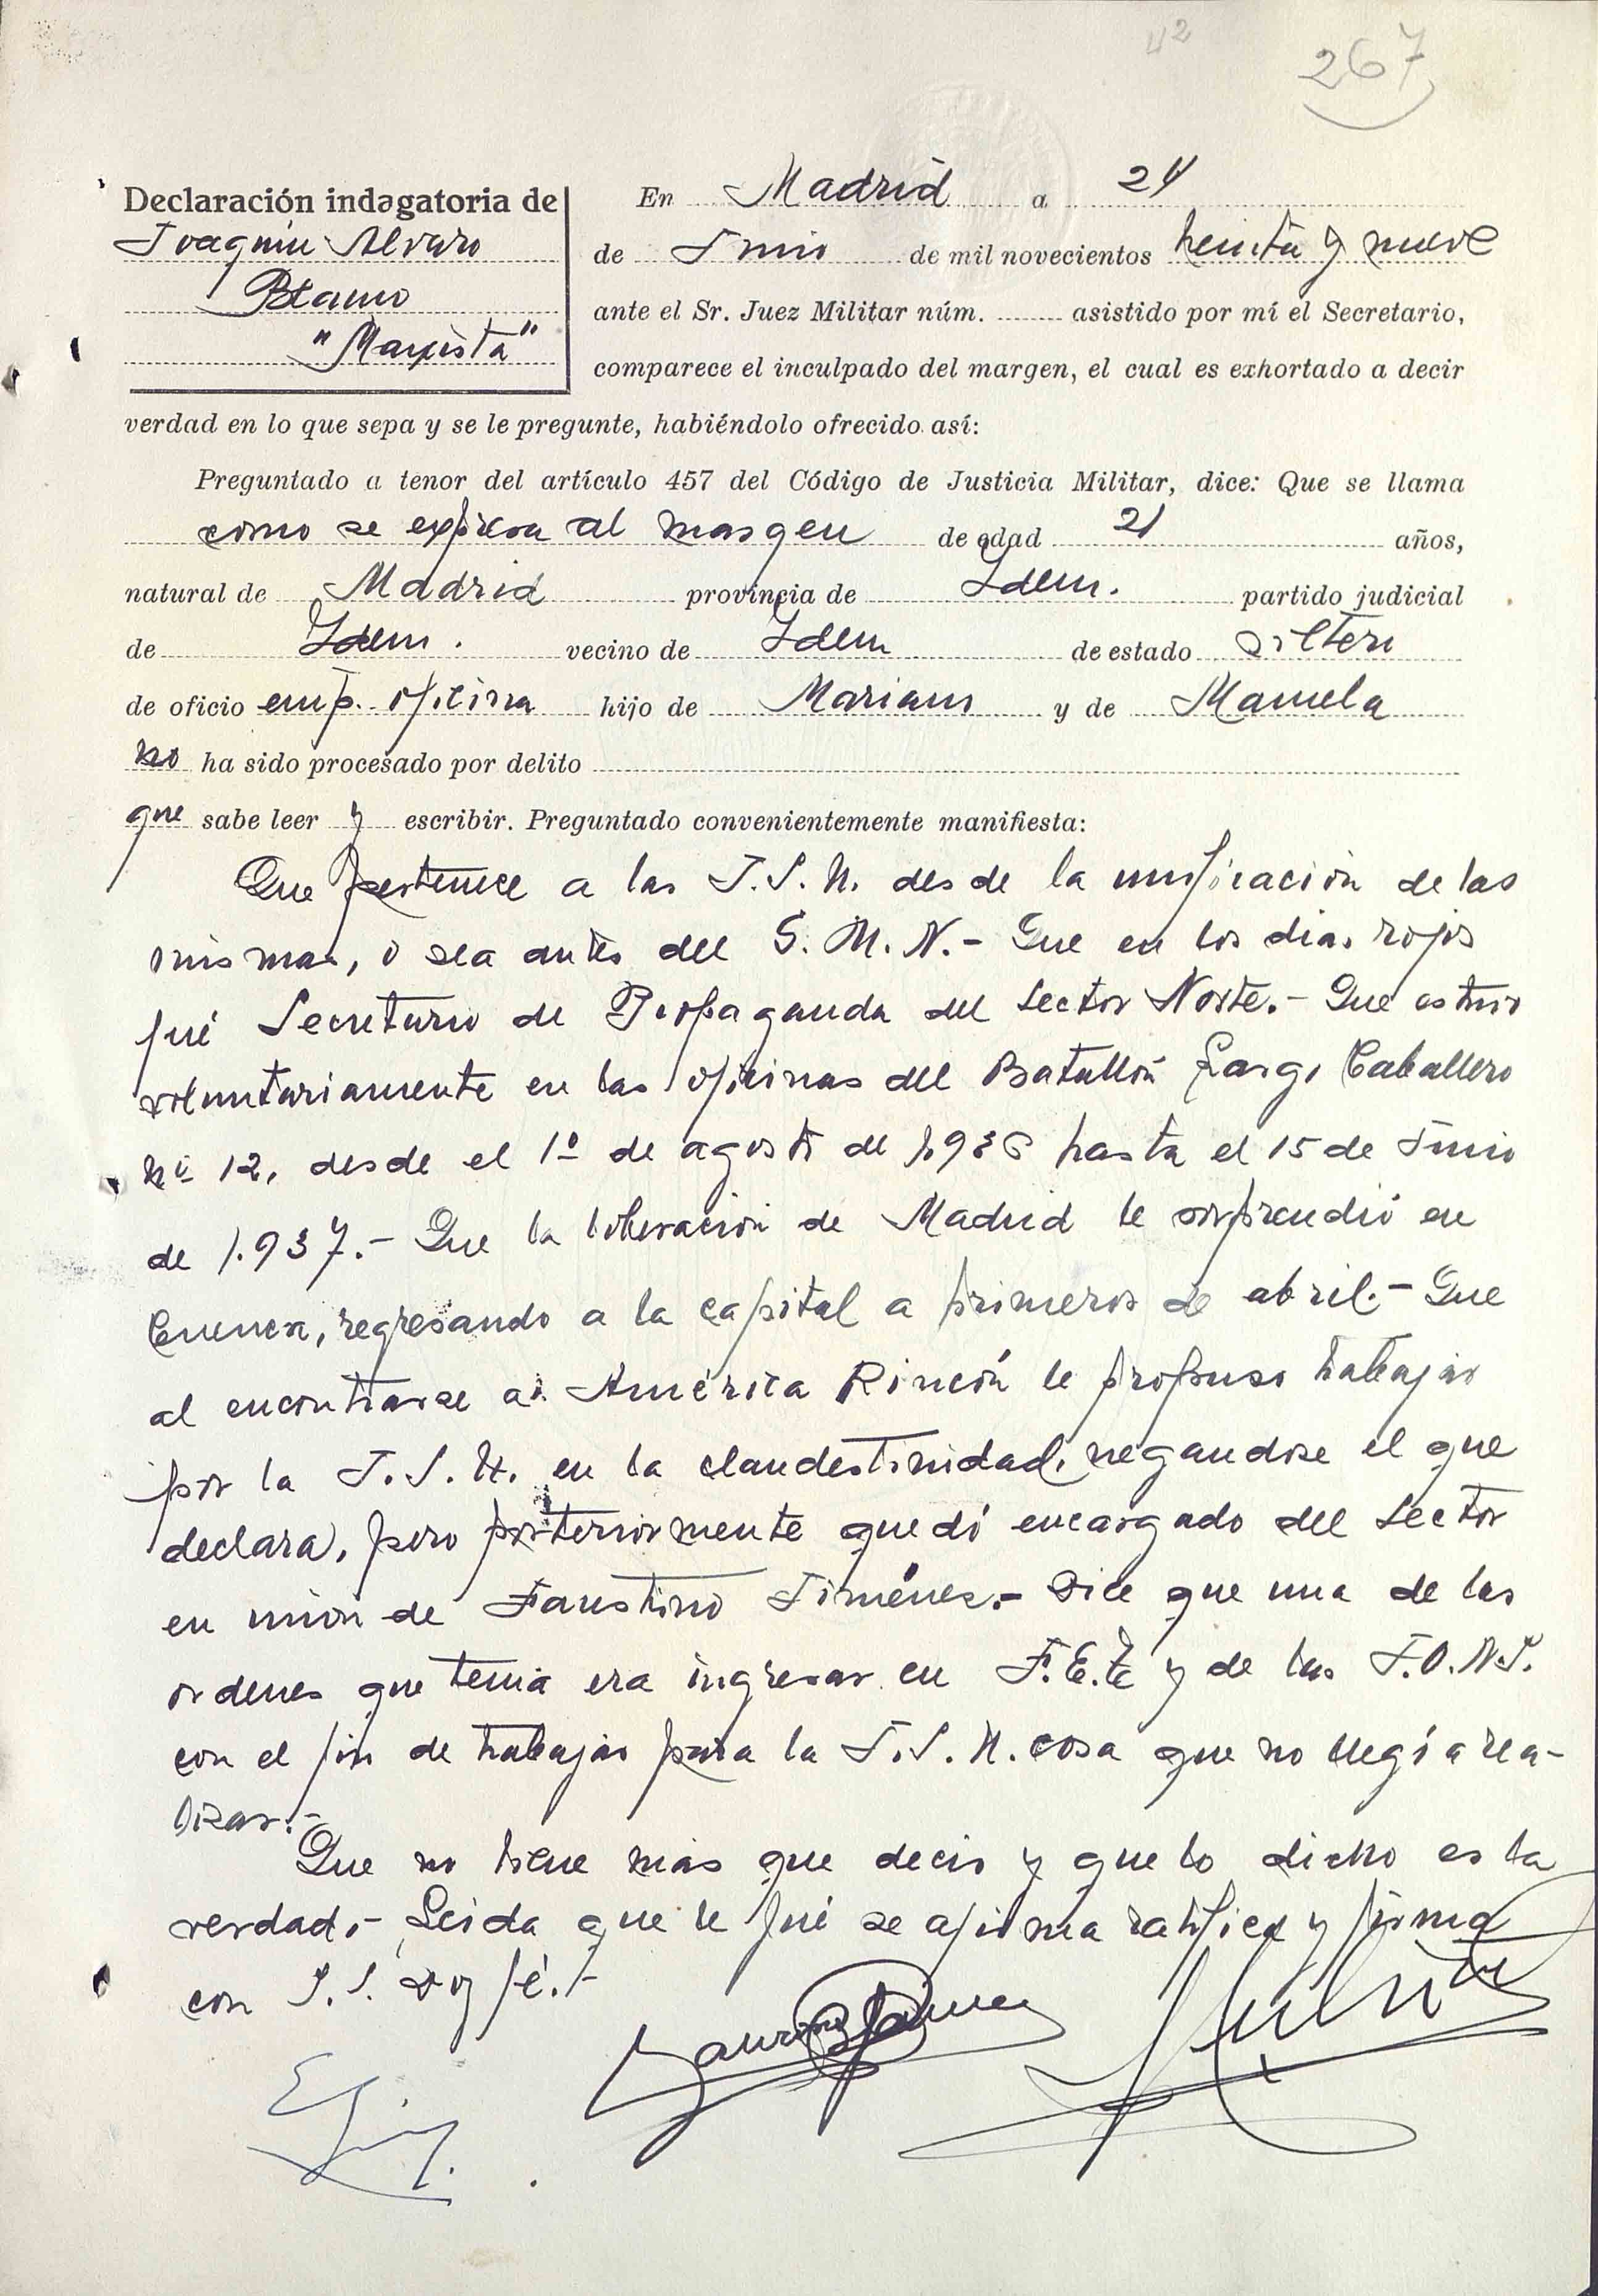 42
267
Declaración indagatoria de
Joaquin Alvaro
Blanco
"Marxista"
En Madrid a 24
de Junio de mil novecientos treinta y nueve
ante el Sr. Juez Militar núm. asistido por mí el Secretario,
comparece el inculpado del margen, el cual es exhortado a decir
verdad en lo que sepa y se le pregunte, habiéndolo ofrecido así:
Preguntado a tenor del artículo 457 del Código de Justicia Militar, dice: Que se llama
como se expresa al margen de edad 21 años,
natural de Madrid provincia de Idem. partido judicial
de Idem. vecino de Idem de estado soltero
de oficio emp. oficina hijo de Mariano y de Manuela
no ha sido procesado por delito
que sabe leer y escribir. Preguntado convenientemente manifiesta:
Que pertenece a las J.S.U. desde la unificación de las
mismas, o sea antes del G.M.N.- Que en los dias rojos
fué Secretario de Propaganda del Sector Norte.- Que estuvo
voluntariamente en las oficinas del Batallón Largo Caballero
nº 12, desde el 1º de agosto de 1936 hasta el 15 de Junio
de 1.937.- Que la liberación de Madrid le sorprendió en
Cuenca, regresando a la capital a primeros de abril.- Que
al encontrarse a América Rincón le propuso trabajar
por la J.S.U. en la clandestinidad, negandose el que
declara, pero posteriormente quedó encargado del Sector
en unión de Faustino Jiménez.- Dice que una de las
ordenes que tenia era ingresar en F.E.T. y de las J.O.N.S.
con el fin de trabajar para la J.S.U. cosa que no llegó a rea-
lizar.-
Que no tiene más que decir y que lo dicho es la
verdad.- Leida que le fué se afirma ratifica y firma
con S.S. doy fé.-